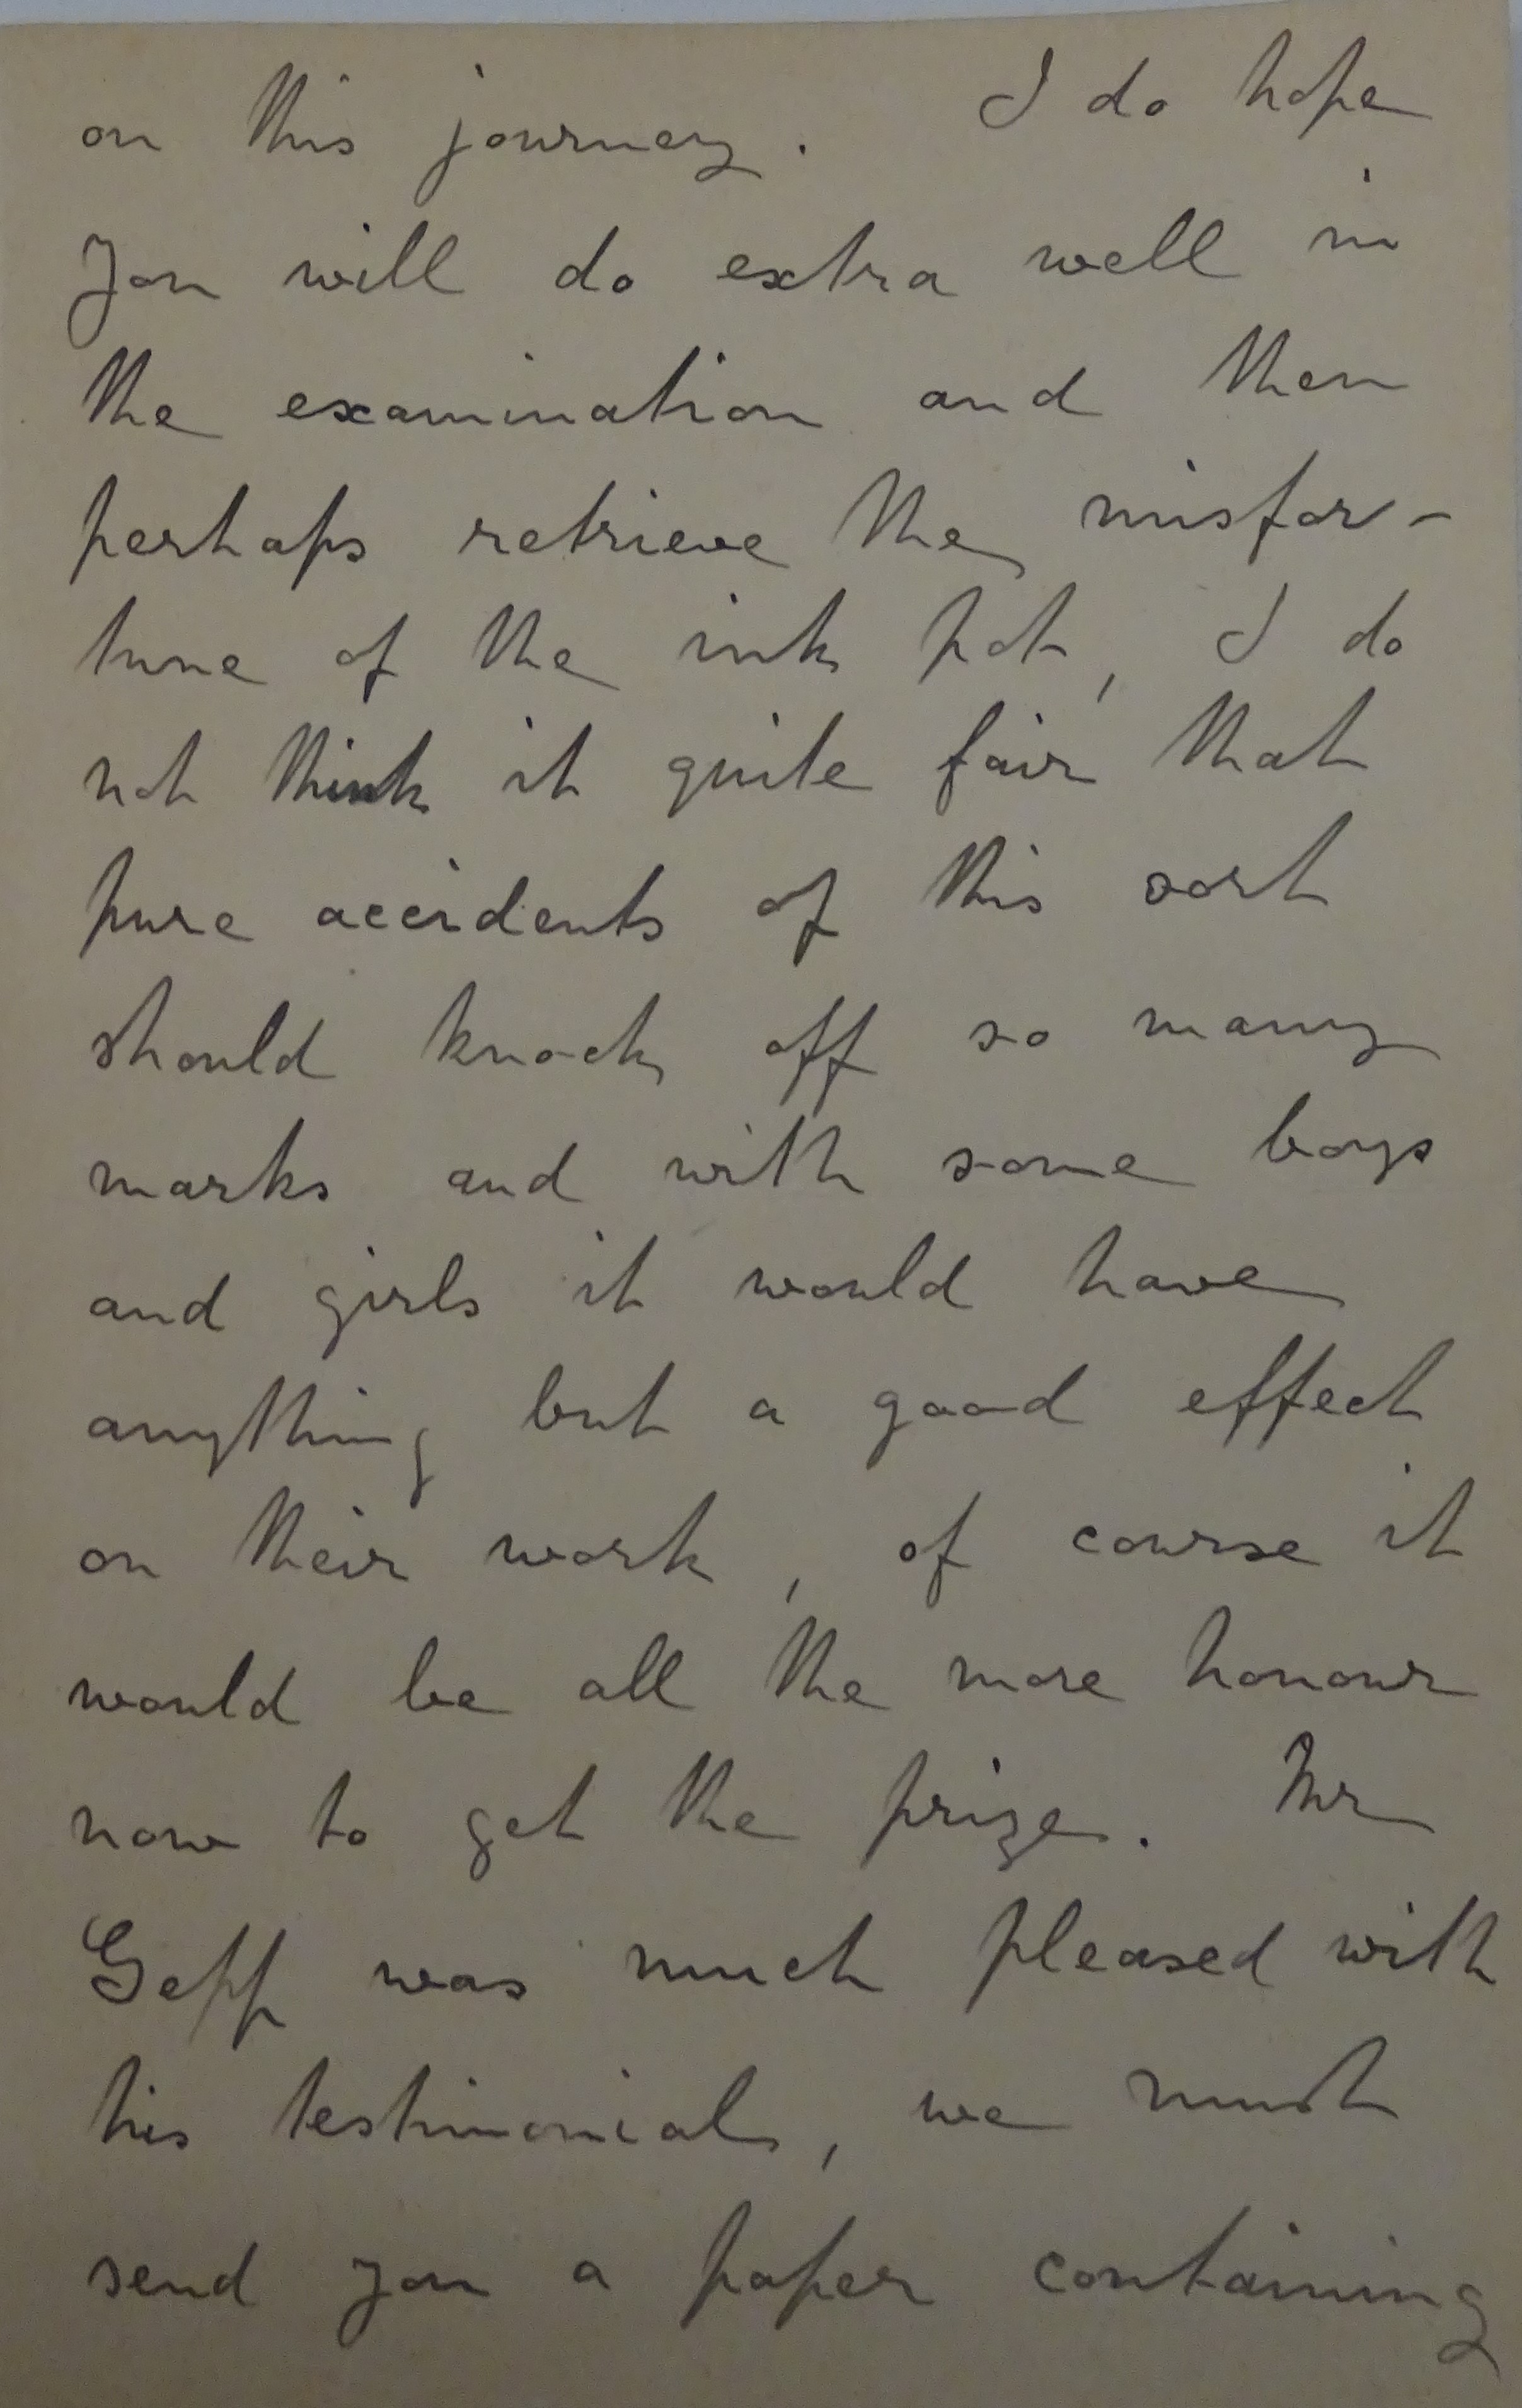 on this journey. I do hope
you will do extra well in
the examination and then
perhaps retrieve the misfor-
tune of the ink pot, I do
not think it quite fair that
pure accidents of this sort
should knock off so many
marks and with some boys
and girls it would have
anything but a good effect
on their work, of course it
would be all the more honour
now to get the prize. Mr
Gepp was much pleased with
his testimonial, we must
send you a paper containing